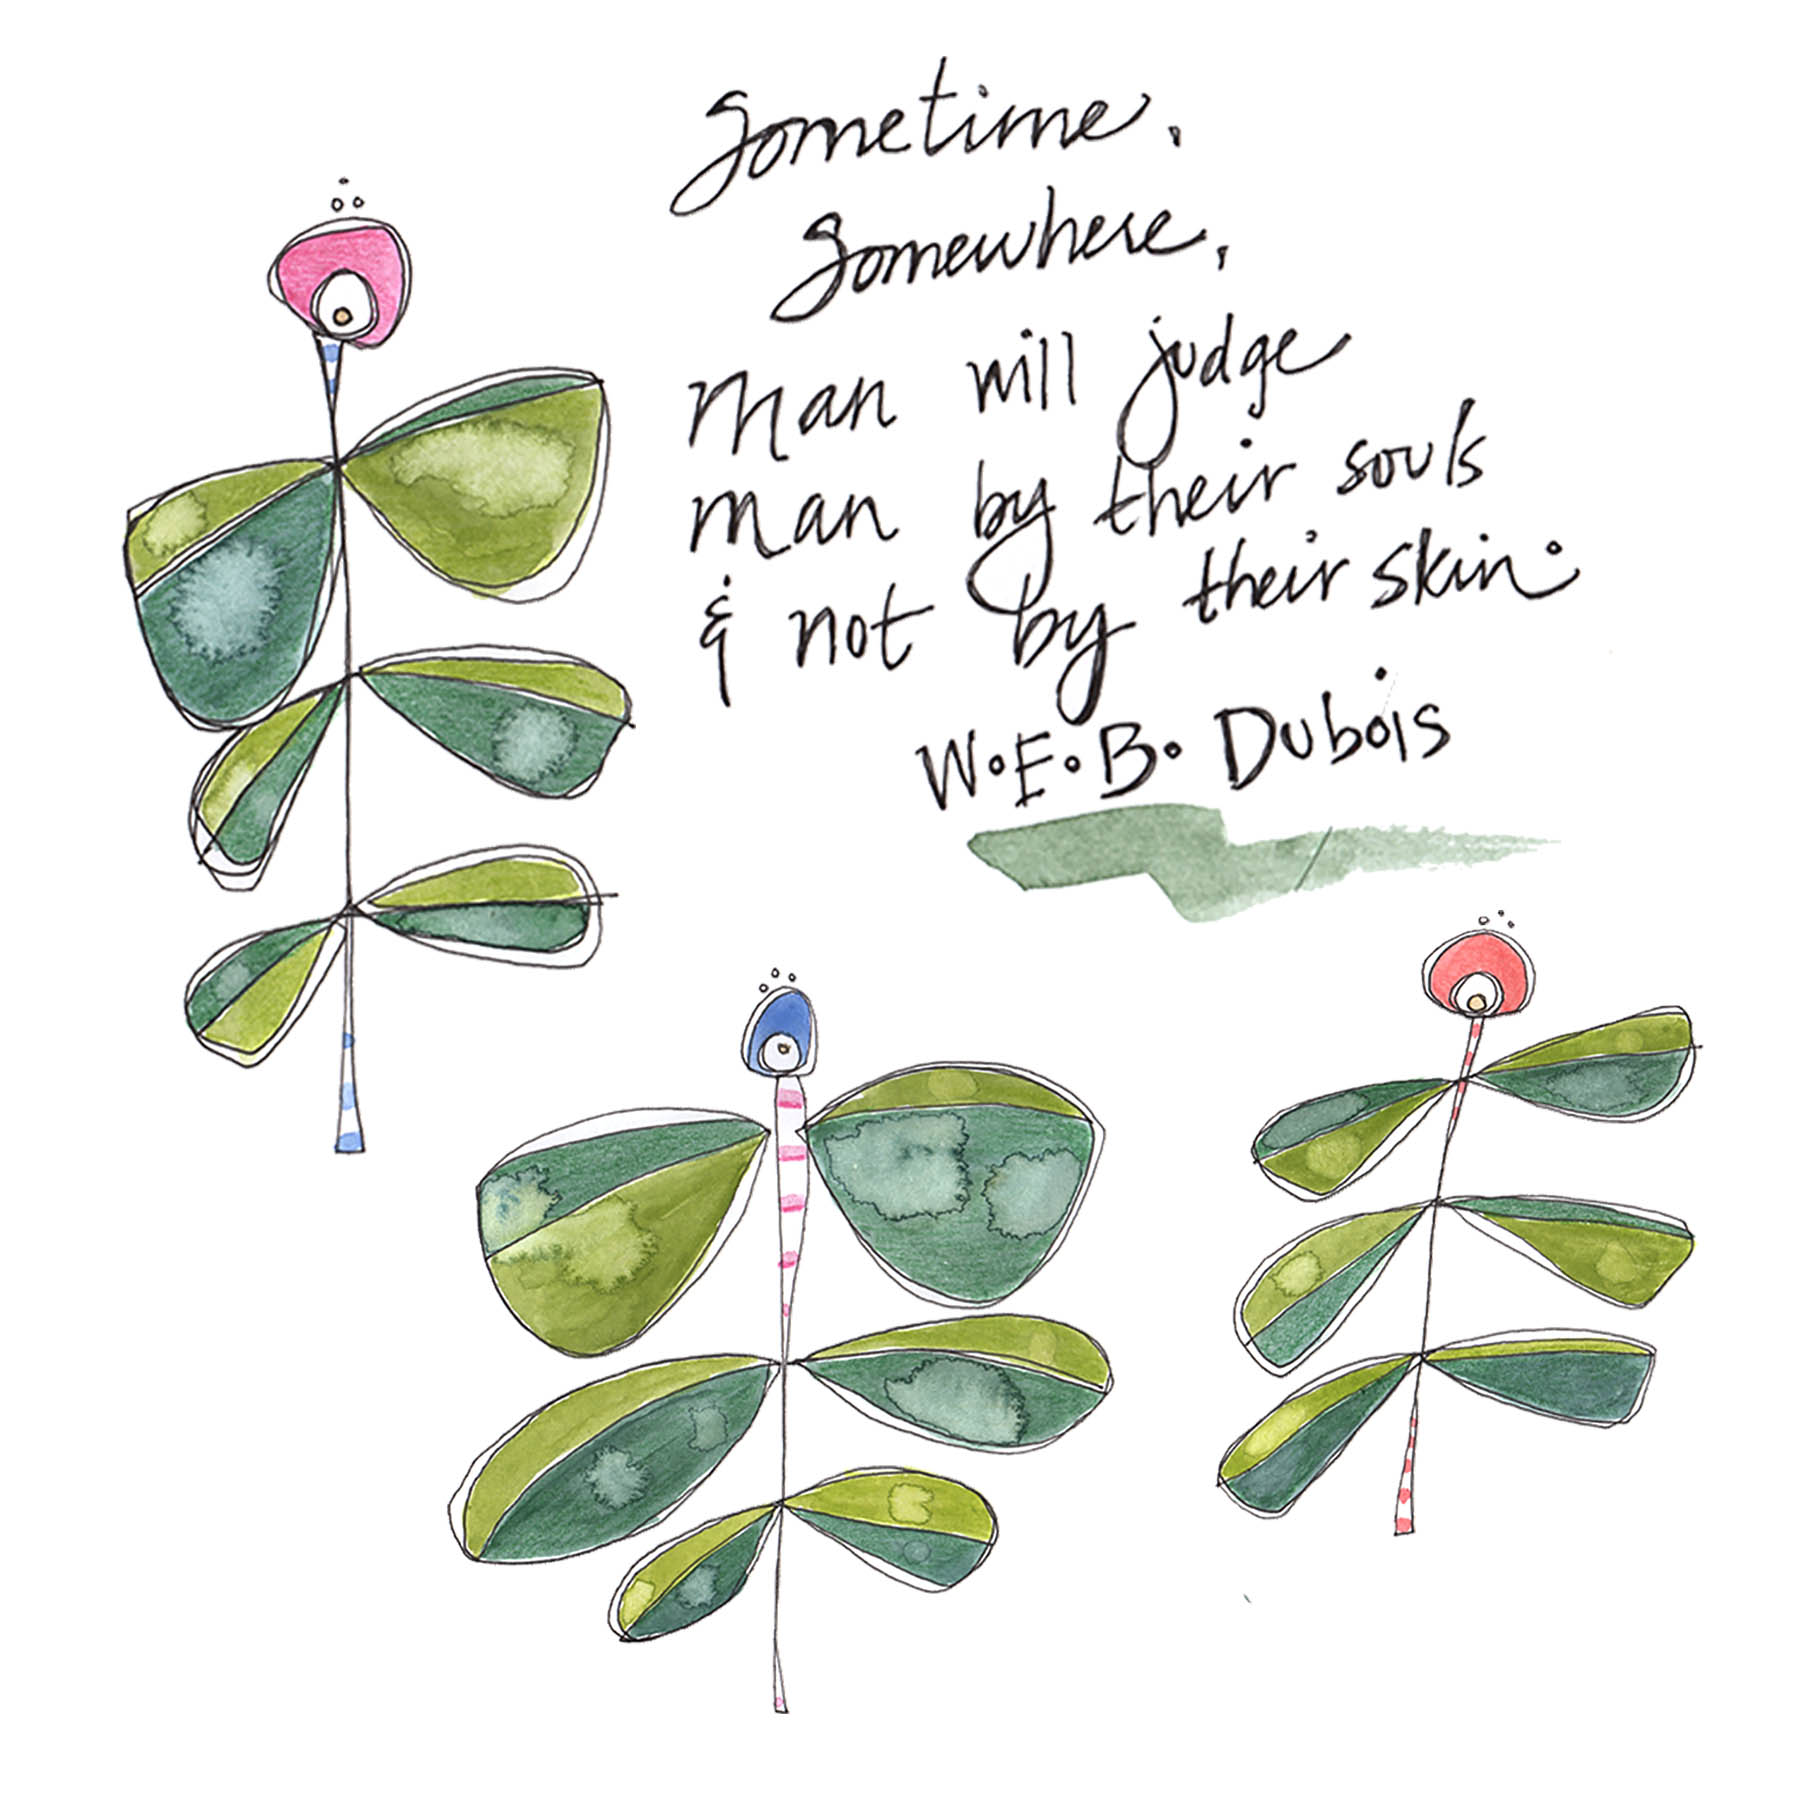 Sometime,
Somewhere,
man will judge
man by their souls
& not by their skin.
W.E.B. Dubois